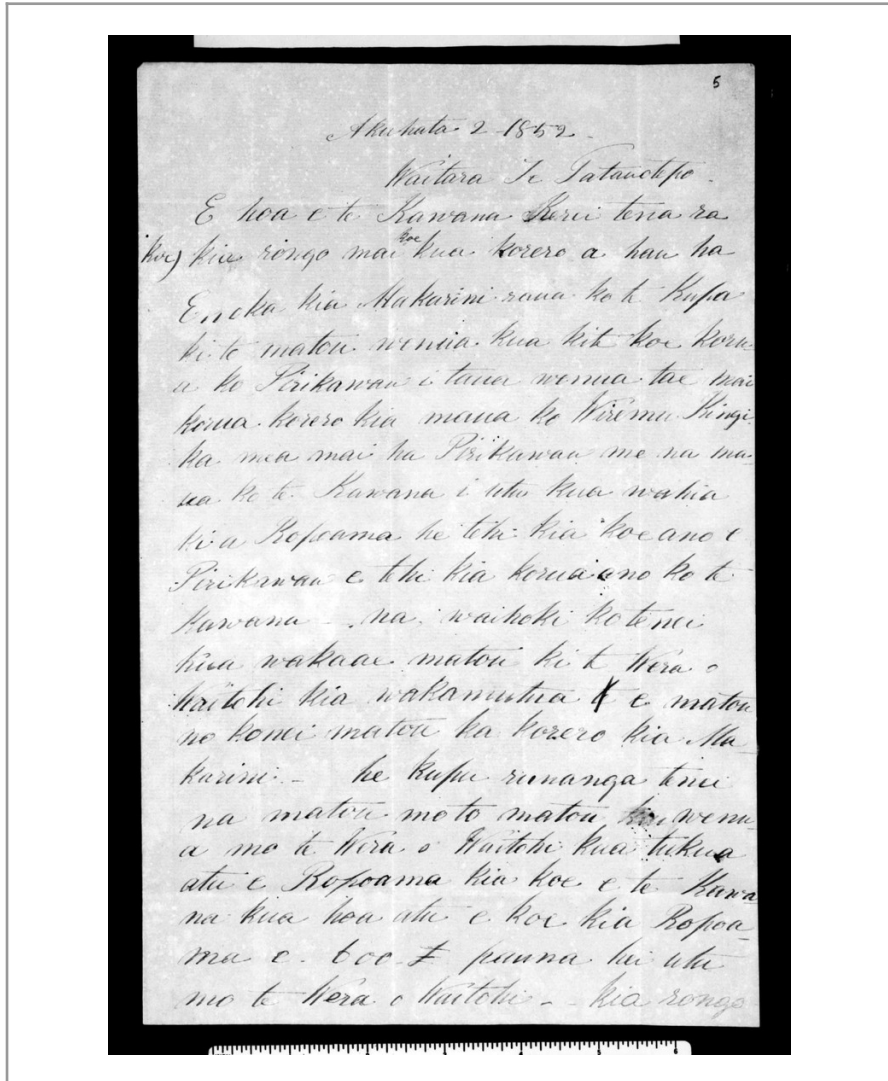 5
Akuhata 2 1852
Waitara Te Tatauotepo.
E hoa e te Kawana Kerei tena ra
koe) kia rongo mai koe kua korero a hau ha
Eneka kia Makarini raua ko te Kupa
ki te matou wenua kua kite koe koru
a ko Pirikawau i taua wenua tae mai
korua korero kia maua ko Wiremu Kingi
ka mea mai ha Pirikawau me na ma
ua ko te Kawana i utu kua wahia
ki a Ropoama he tehi kia koe ano e
Pirikawau e tehi kia korua ano ko te
Kawana - na waihoki ko tenei
kua wakaae matou ki te Wera o
haitohi kia wakamutua e matou
no konei matou ka korero kia Ma
karini - he kupu runanga tenei
na matou mo to matou wenu
a mo te Wera o Waitohi kua tukua
atu e Ropoama kia koe e te Kawa
na kua hoa utu e koe kia Ropoa
ma e. 600 £ pauna hei utu
mo te Wera o Waitohi - kia rongo